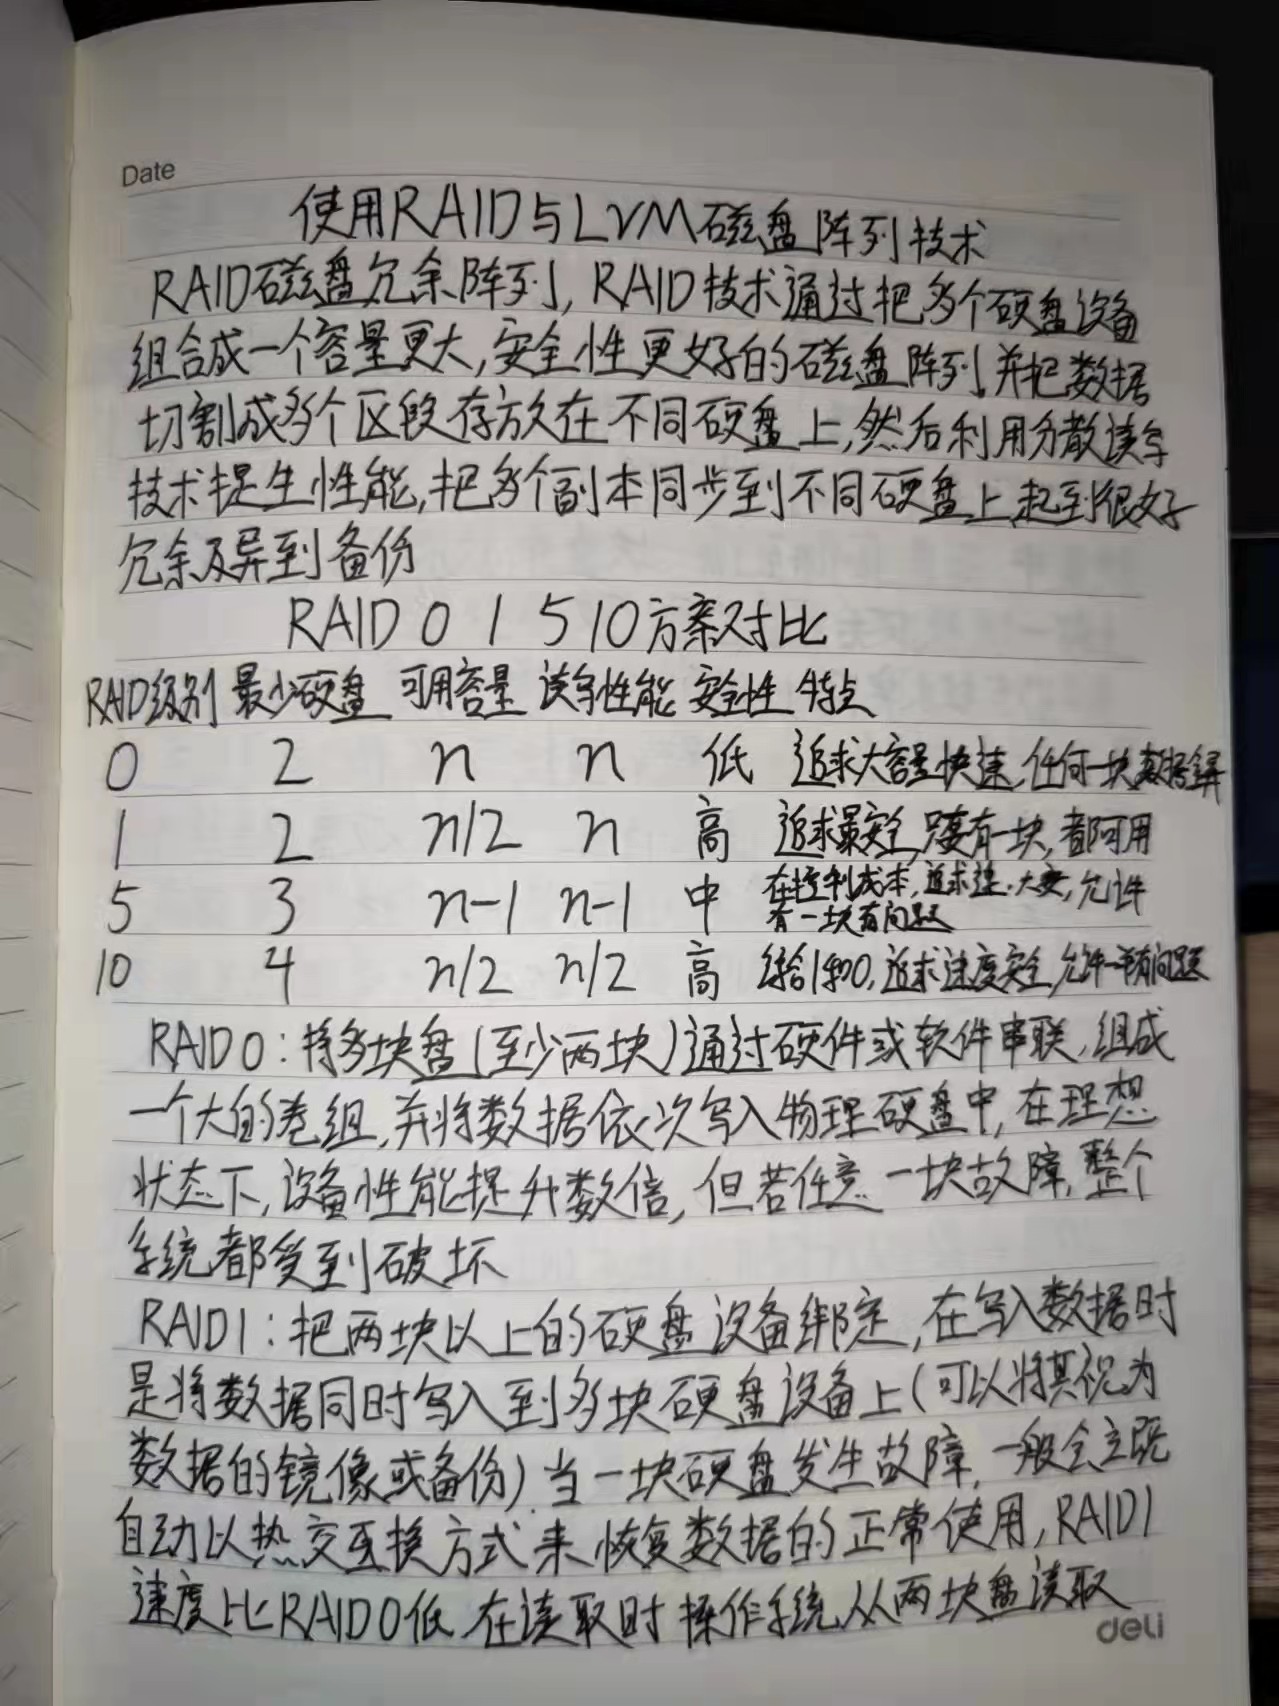 Date
使用RAID与LVM磁盘阵列技术
RAID磁盘冗余阵列,RAID技术通过把多个硬盘设备
组合成一个容量更大,安全性更好的磁盘阵列,并把数据
切割成多个区段存放在不同硬盘上,然后利用分散读写
技术提生性能,把多个副本同步到不同硬盘上,起到很好
冗余及异到备份
RAID 0 1 5 10方案对比
RAID级别 最少硬盘 可用容量 读写性能 安全性 特点
0 2 n n 低 追求大容量快速,任何一块数据
1 2 n/2 n 高 追求最安全,只要有一块,都可用
5 3 n-1 n-1 中 在控制成本,追求 大 安,允许
有一块有问题
10 4 n/2 n/2 高 结合1和0,追求速度安全,允许一半有问题
RAID0:将多块盘(至少两块)通过硬件或软件串联,组成
一个大的卷组,并将数据依次写入物理硬盘中,在理想
状态下,设备性能提升数倍,但若任意一块故障,整个
系统都受到破坏
RAID1:把两块以上的硬盘设备绑定,在写入数据时
是将数据同时写入到多块硬盘设备上(可以将其视为
数据的镜像或备份)当一块硬盘发生故障,一般会立既
自动以热交互换方式来恢复数据的正常使用,RAID1
速度比RAID0低,在读取时操作系统从两块盘读取
deli